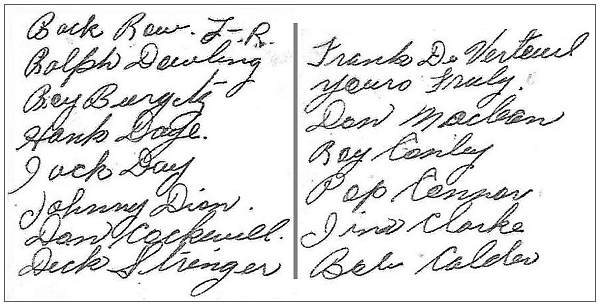 Back Row. L-R.
Ralph Dowling
Roy Burgitz
Hank Doge.
Jack Day
Johnny Dion.
Dan Cockwell.
Deck Stringer
Frank De Verteuil
Yours Truly.
Don Maclean
Roy Conley
Pop Connor
Jim Clarke
Bob Calder